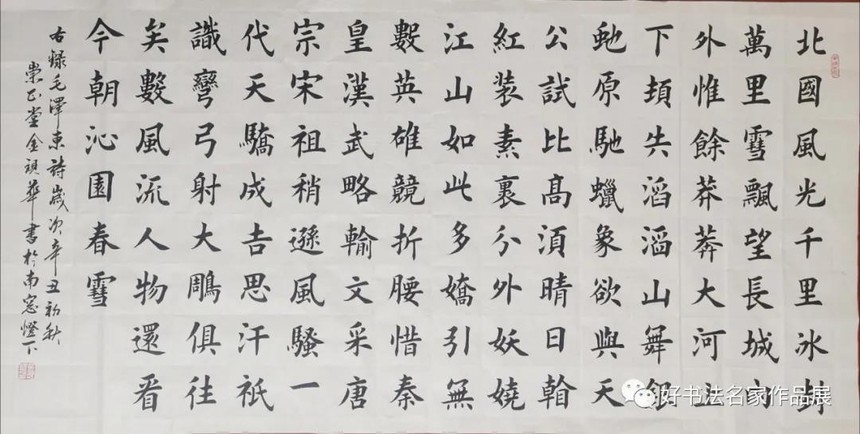 北國風光千里冰封
萬里雪飄望長城内
外惟餘莽莽大河上
下頓失滔滔山舞銀
虵原馳蠟象欲與天
公試比高須晴日
紅裝素裹分外妖嬈
江山如此多嬌引無
數英雄競折腰惜秦
皇漢武略輸文采唐
宗宋祖稍遜風騷一
代天驕成吉思汗祇
識彎弓射大鵰俱往
矣數風流人物還看
今朝沁園春雪
右錄毛澤東詩歲次辛丑初秋
崇正堂金華書於南窓燈下
好书法名家作品展